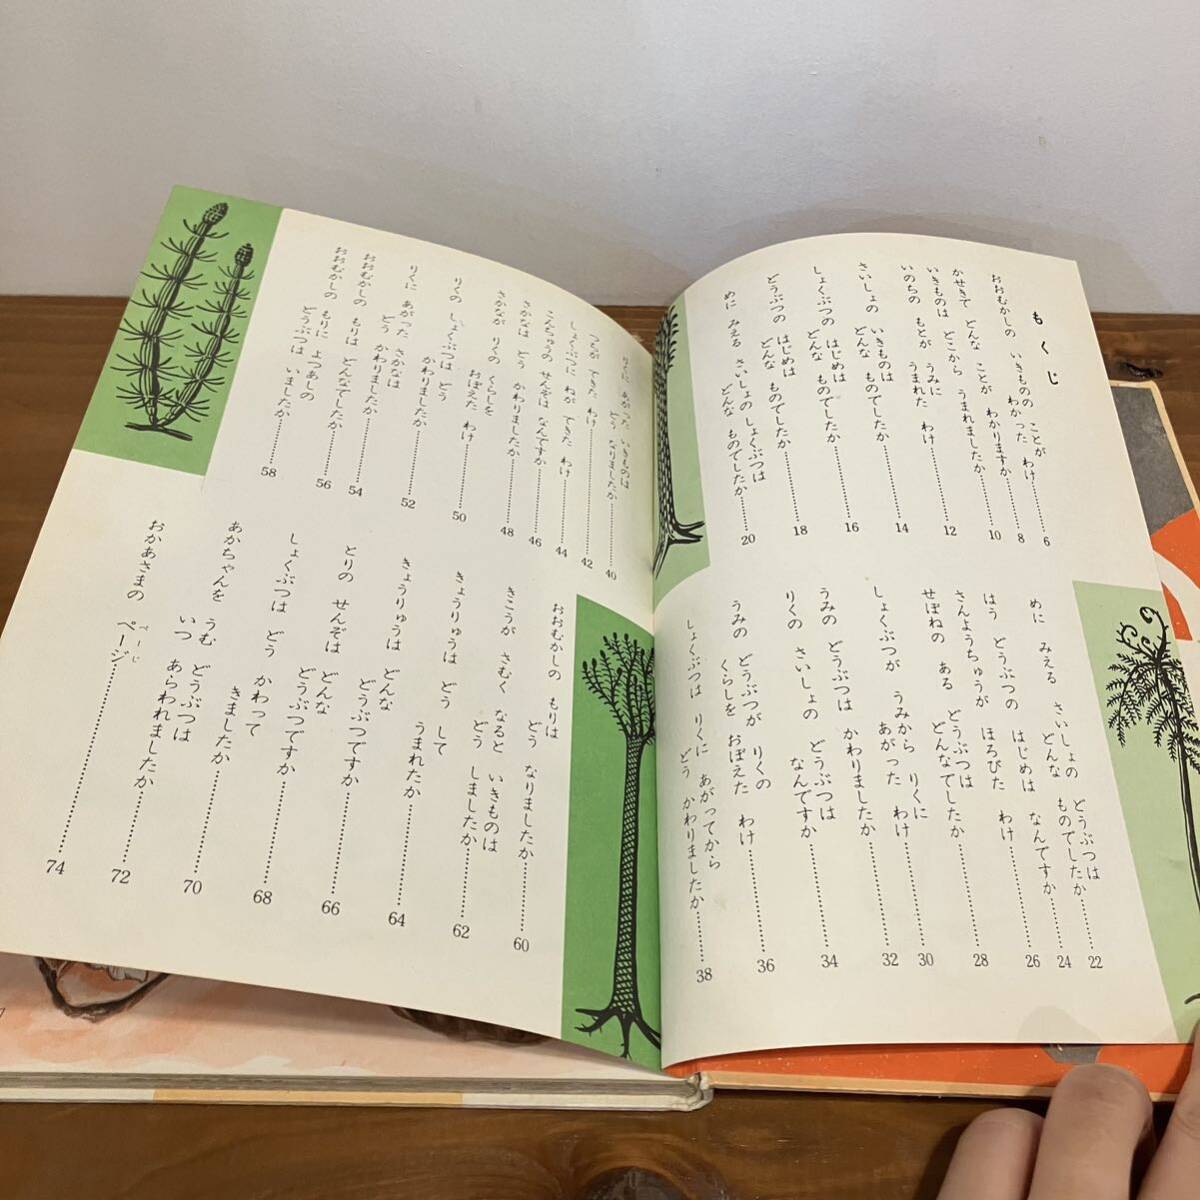 もくじ
おおむかしの いきものの ことが
わかった わけ……6
かせきで どんな ことが
わかりますか……8
いきものは どこから うまれましたか……10
いのちの もとが うみに
うまれた わけ……12
さいしょの いきものは
どんな ものでしたか……14
しょくぶつの はじめは
どんな ものでしたか……16
どうぶつの はじめは
どんな ものでしたか……18
めに みえる さいしょの しょくぶつは
どんな ものでしたか……20
めに みえる さいしょの どうぶつは
どんな ものでしたか……22
はう どうぶつの はじめは なんですか……24
さんようちゅうが ほろびた わけ……26
せぼねの ある どうぶつは
どんなでしたか……28
しょくぶつが うみから りくに
あがった わけ……30
うみの どうぶつは かわりましたか……32
りくの さいしょの どうぶつは
なんですか……34
うみの どうぶつが りくの
くらしを おぼえた わけ……36
しょくぶつは りくに あがってから
どう かわりましたか……38
あがった いきものは
どう なりましたか……40
できた わけ……42
しょくぶつに できた わけ……44
こんちゅうの せんぞは なんですか……46
さかなは どう かわりましたか……48
さかなが りくの くらしを
おぼえた わけ……50
りくの しょくぶつは どう
かわりましたか……52
りくに あがった さかなは
どう かわりましたか……54
おおむかしの もりは どんなでしたか……56
おおむかしの もりに よつあしの
どうぶつは いましたか……58
おおむかしの もりは
どう なりましたか……60
きこうが さむく なると いきものは
どう しましたか……62
きょうりゅうは どう して
うまれたか……64
きょうりゅうは どんな
どうぶつですか……66
とりの せんぞは どんな
どうぶつですか……68
しょくぶつは どう かわって
きましたか……70
あかちゃんを うむ どうぶつは
いつ あらわれましたか……72
おかあさまの ページ……74